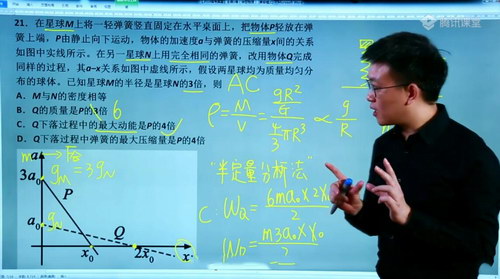 腾讯课堂
21. 在星球M上将一轻弹簧竖直固定在水平桌面上，把物体P轻放在弹
簧上端，P由静止向下运动，物体的加速度a与弹簧的压缩量x间的关系
如图中实线所示。在另一星球N上用完全相同的弹簧，改用物体Q完成
同样的过程，其a-x关系如图中虚线所示，假设两星球均为质量均匀分
布的球体。已知星球M的半径是星球N的3倍，则
AC
A. M与N的密度相等
B. Q的质量是P的3倍
6
C. Q下落过程中的最大动能是P的4倍
D. Q下落过程中弹簧的最大压缩量是P的4倍
ρ = M/V = gR²/G / 4/3 πR³ ∝ g/R
a
gM = 3gN
3a₀
P
a₀
gN
Q
x₀
2x₀
x
"半定量分析法"
C: WQ = 6ma₀×2x₀ / 2
m3a₀×x₀ / 2